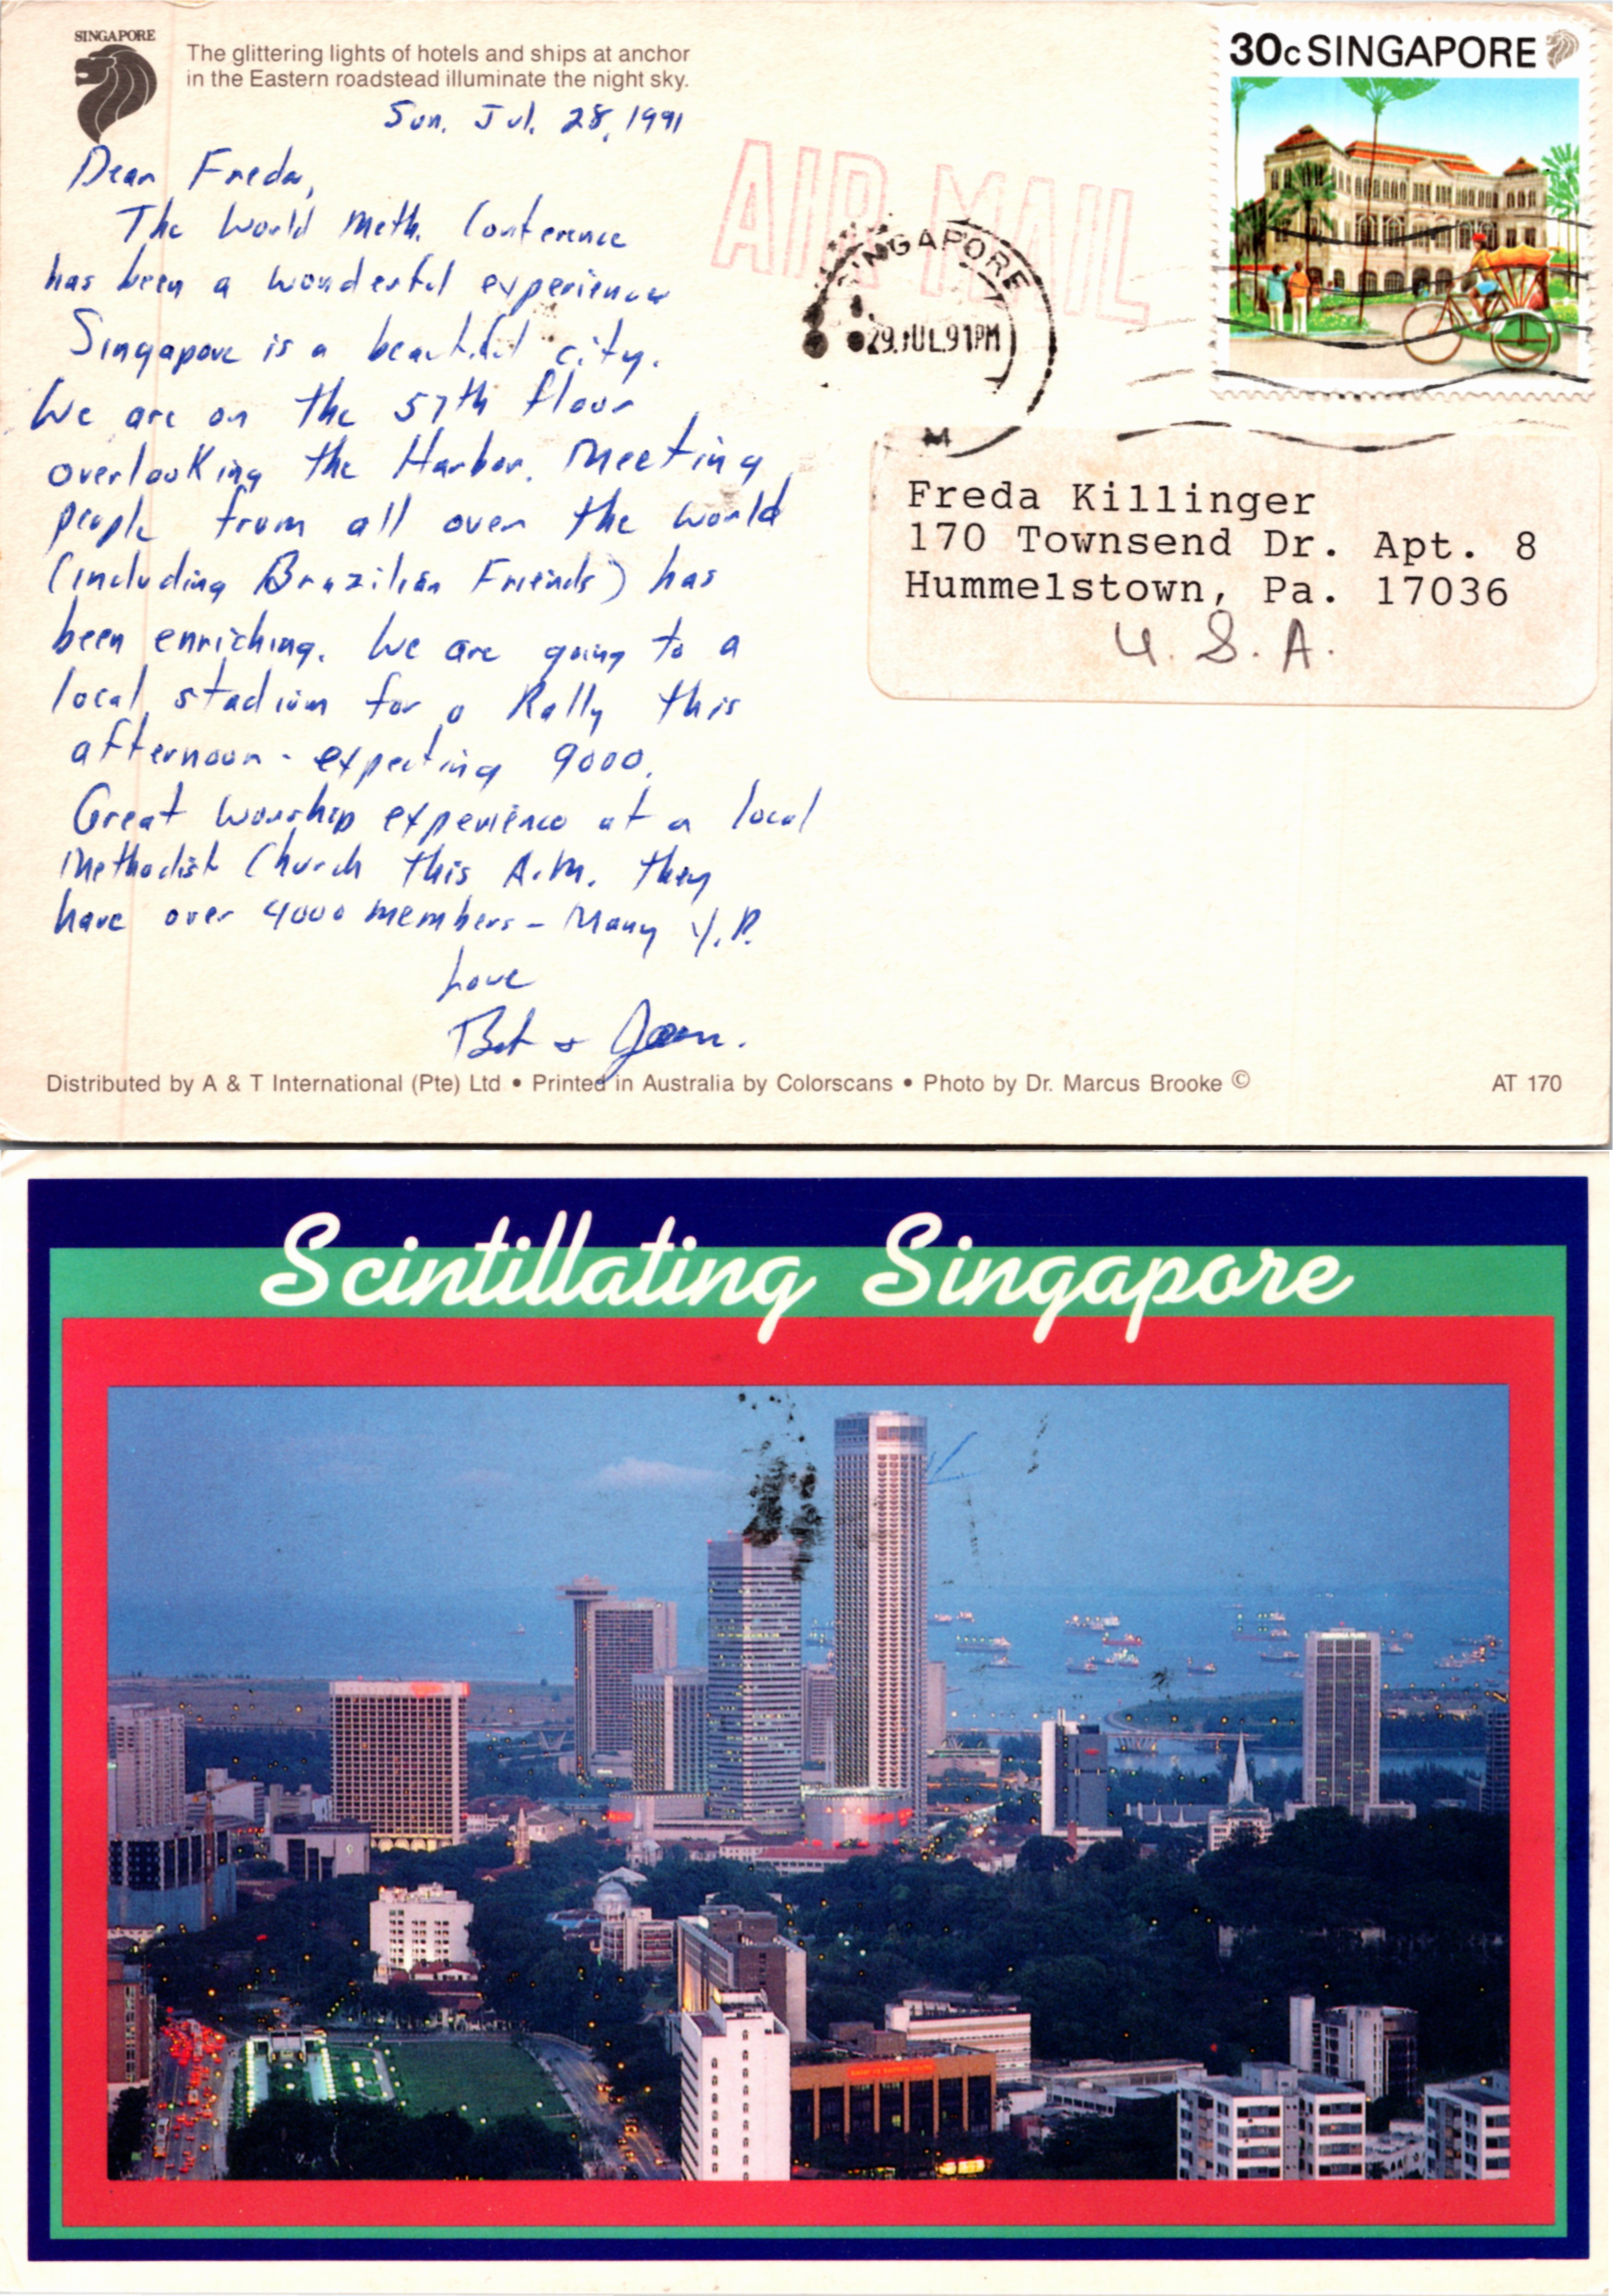 SINGAPORE
The glittering lights of hotels and ships at anchor
in the Eastern roadstead illuminate the night sky.
Sun. Jul. 28, 1991
Dear Freda,
The World Meth. Conference
has been a wonderful experience
Singapore is a beautiful city.
We are on the 57th floor
overlooking the Harbor. Meeting
people from all over the world
(including Brazilian Friends) has
been enriching. We are going to a
local stadium for a Rally this
afternoon - expecting 9000.
Great worship experience at a local
Methodist Church this A.M. they
have over 4000 members - Many Y.P.
Love
Bob + Jean.
30c SINGAPORE
AIR MAIL
SINGAPORE
29.JUL.91PM
Freda Killinger
170 Townsend Dr. Apt. 8
Hummelstown, Pa. 17036
U.S.A.
Distributed by A & T International (Pte) Ltd • Printed in Australia by Colorscans • Photo by Dr. Marcus Brooke ©
AT 170
Scintillating Singapore